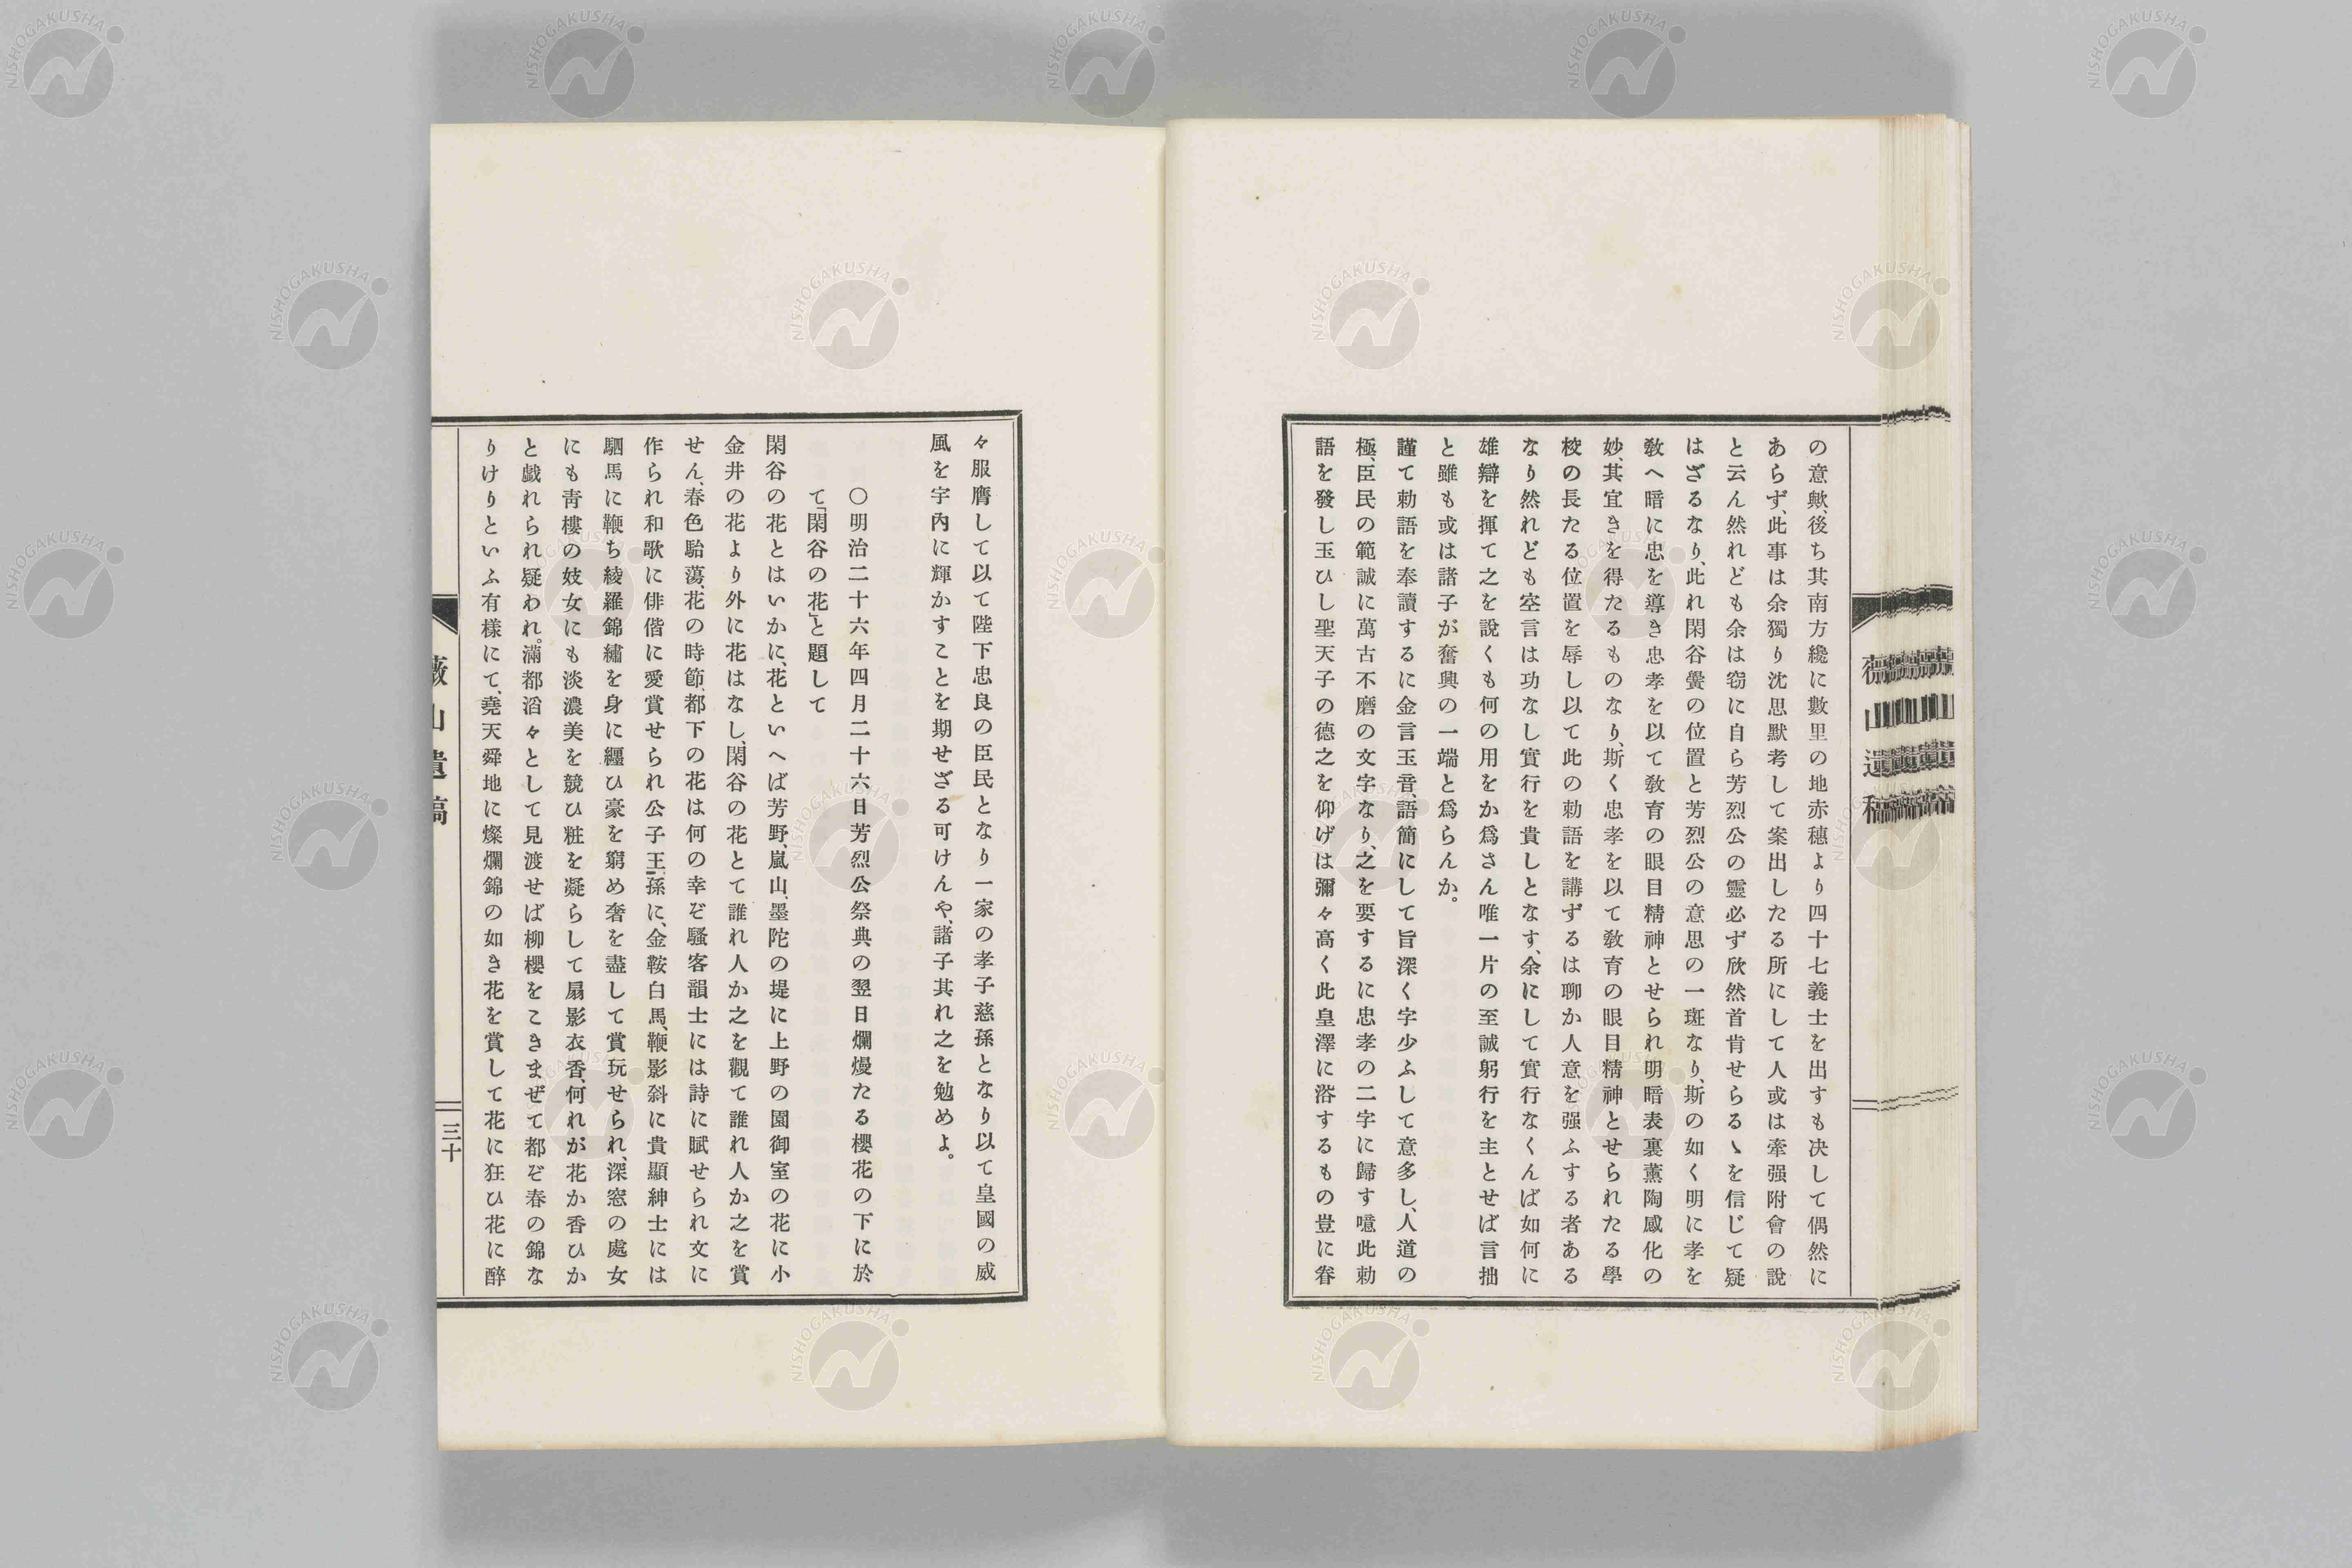 の意歟、後ち其南方纔に數里の地赤穗より四十七義士を出すも决して偶然に
あらず、此事は余獨り沈思默考して案出したる所にして人或は牽强附會の說
と云ん然れども余は窃に自ら芳烈公の靈必ず欣然首肯せらるゝを信じて疑
はざるなり、此れ閑谷黌の位置と芳烈公の意思の一斑なり、斯の如く明に孝を
敎へ暗に忠を導き忠孝を以て敎育の眼目精神とせられ明暗表裏薰陶感化の
妙、其宜きを得たるものなり、斯く忠孝を以て敎育の眼目精神とせられたる學
校の長たる位置を辱し以て此の勅語を講ずるは聊か人意を强ふする者ある
なり然れども空言は功なし實行を貴しとなす、余にして實行なくんば如何に
雄辯を揮て之を說くも何の用をか爲さん唯一片の至誠躬行を主とせば言拙
と雖も或は諸子が奮興の一端と爲らんか。
謹て勅語を奉讀するに金言玉音、語簡にして旨深く字少ふして意多し、人道の
極、臣民の範誠に萬古不磨の文字なり、之を要するに忠孝の二字に歸す噫此勅
語を發し玉ひし聖天子の德之を仰げは彌々高く此皇澤に浴するもの豈に眷
々服膺して以て陛下忠良の臣民となり一家の孝子慈孫となり以て皇國の威
風を宇內に輝かすことを期せざる可けんや、諸子其れ之を勉めよ。
〇明治二十六年四月二十六日芳烈公祭典の翌日爛熳たる櫻花の下に於
て「閑谷の花」と題して
閑谷の花とはいかに、花といへば芳野、嵐山、墨陀の堤に上野の園御室の花に小
金井の花より外に花はなし、閑谷の花とて誰れ人か之を觀て誰れ人か之を賞
せん、春色駘蕩、花の時節、都下の花は何の幸ぞ騷客韻士には詩に賦せられ文に
作られ和歌に俳偕に愛賞せられ公子王孫に、金鞍白馬、鞭影斜に貴顯紳士には
駟馬に鞭ち綾羅錦繡を身に纒ひ豪を窮め奢を盡して賞玩せられ、深窓の處女
にも靑樓の妓女にも淡濃美を競ひ粧を凝らして扇影衣香、何れが花か香ひか
と戯れられ疑われ。滿都滔々として見渡せば柳櫻をこきまぜて都ぞ春の錦な
りけりといふ有樣にて、堯天舜地に燦爛錦の如き花を賞して花に狂ひ花に醉
薇山遺稿
三十